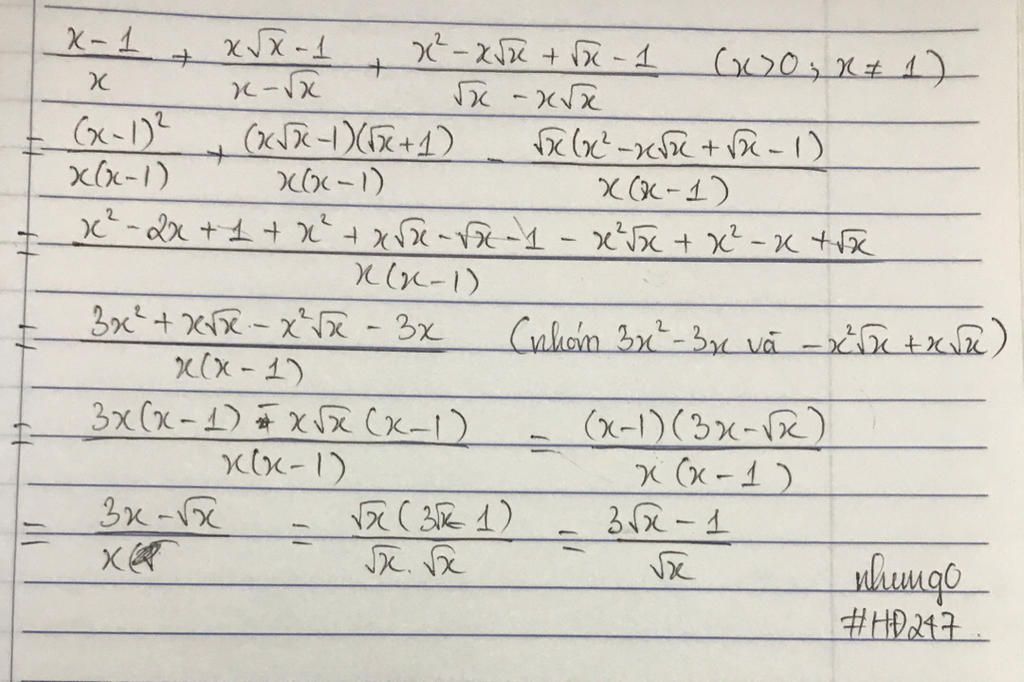 (x-1)/x + (x√x-1)/(x-√x) + (x²-x√x+√x-1)/(√x-x√x) (x>0; x≠1)
= (x-1)²/x(x-1) + (x√x-1)(√x+1)/x(x-1) - √x(x²-x√x+√x-1)/x(x-1)
= (x²-2x+1+x²+x√x-√x-1-x²√x+x²-x+√x)/x(x-1)
= (3x²+x√x-x²√x-3x)/x(x-1) (nhóm 3x²-3x và -x²√x+x√x)
= (3x(x-1)-x√x(x-1))/x(x-1) = (x-1)(3x-√x)/x(x-1)
= (3x-√x)/x = √x(3√x-1)/√x.√x = (3√x-1)/√x
nhung0
#HĐ247